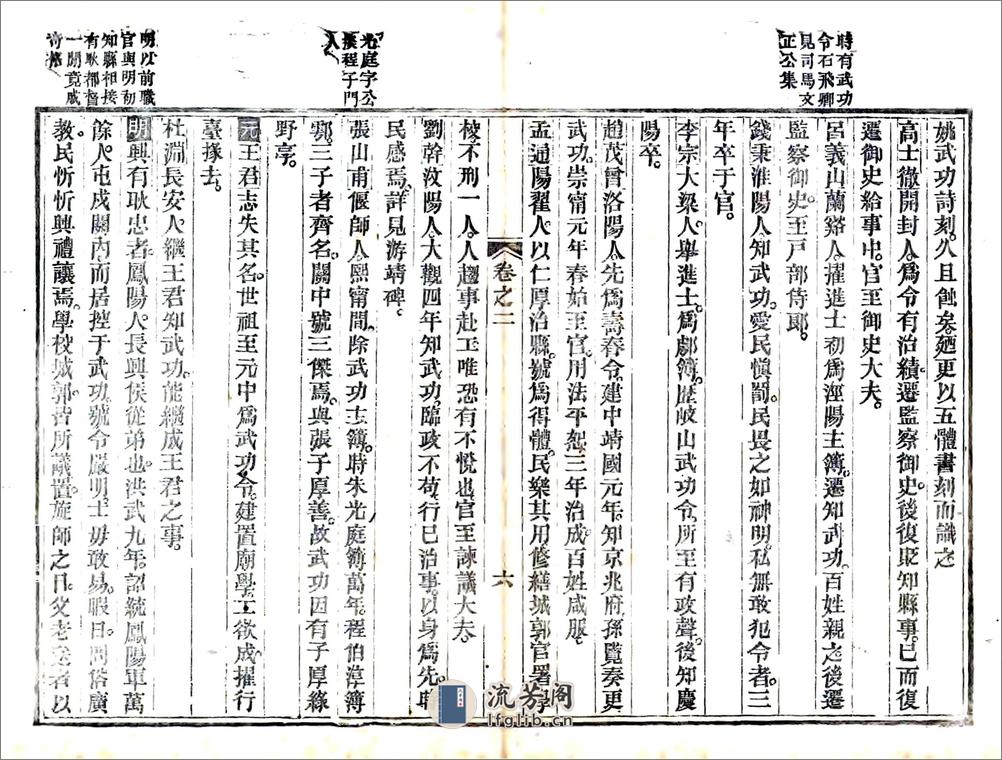 時有武功
令石飛卿
見司馬文
正公集
姚武功詩刻久且蝕矣廼更以五體書刻而識之
高士徹開封人爲令有治績遷監察御史後復貶知縣事已而復
遷御史給事中官至御史大夫
呂義山蘭谿人擢進士初爲涇陽主簿遷知武功百姓親之後遷
監察御史至戸部侍郞
錢秉淮陽人知武功愛民愼罰民畏之如神明私無敢犯令者三
年卒于官
李宗大梁人舉進士爲郿簿歷岐山武功令所至有政聲後知慶
陽卒
趙茂曾洛陽人先爲壽春令建中靖國元年知京兆府孫覽奏更
武功崇甯元年春始至官用法平恕三年治成百姓咸服
孟通陽翟人以仁厚治縣號爲得體民樂其用修繕城郭官署學
卷之二
六
棱不刑一人人趨事赴工唯恐有不悅也官至諫議大夫
劉幹汶陽人大觀四年知武功臨政不苟行已治事以身爲先
民感焉詳見游靖碑
光庭字公
掞程子門
人
張山甫偃師人熙甯間除武功主簿時朱光庭簿萬年程伯淳簿
鄠三子者齊名關中號三傑焉與張子厚善故武功因有子厚綠
野亭
元王君志失其名世祖至元中爲武功令建置廟學工欲成擢行
臺掾去
杜淵長安人繼王君知武功能纘成王君之事
明以前職
官與明初
知縣相接
有耿都督
一開竟成
奇
明興有耿忠者鳳陽人長興侯從弟也洪武九年詔統鳳陽軍萬
餘人屯戍關內而居控于武功號令嚴明士毋敢易暇日問俗廣
教民忻忻興禮讓焉學校城郭皆所議置旋師之日父老矣者以
流芳阁
lfglib.cn